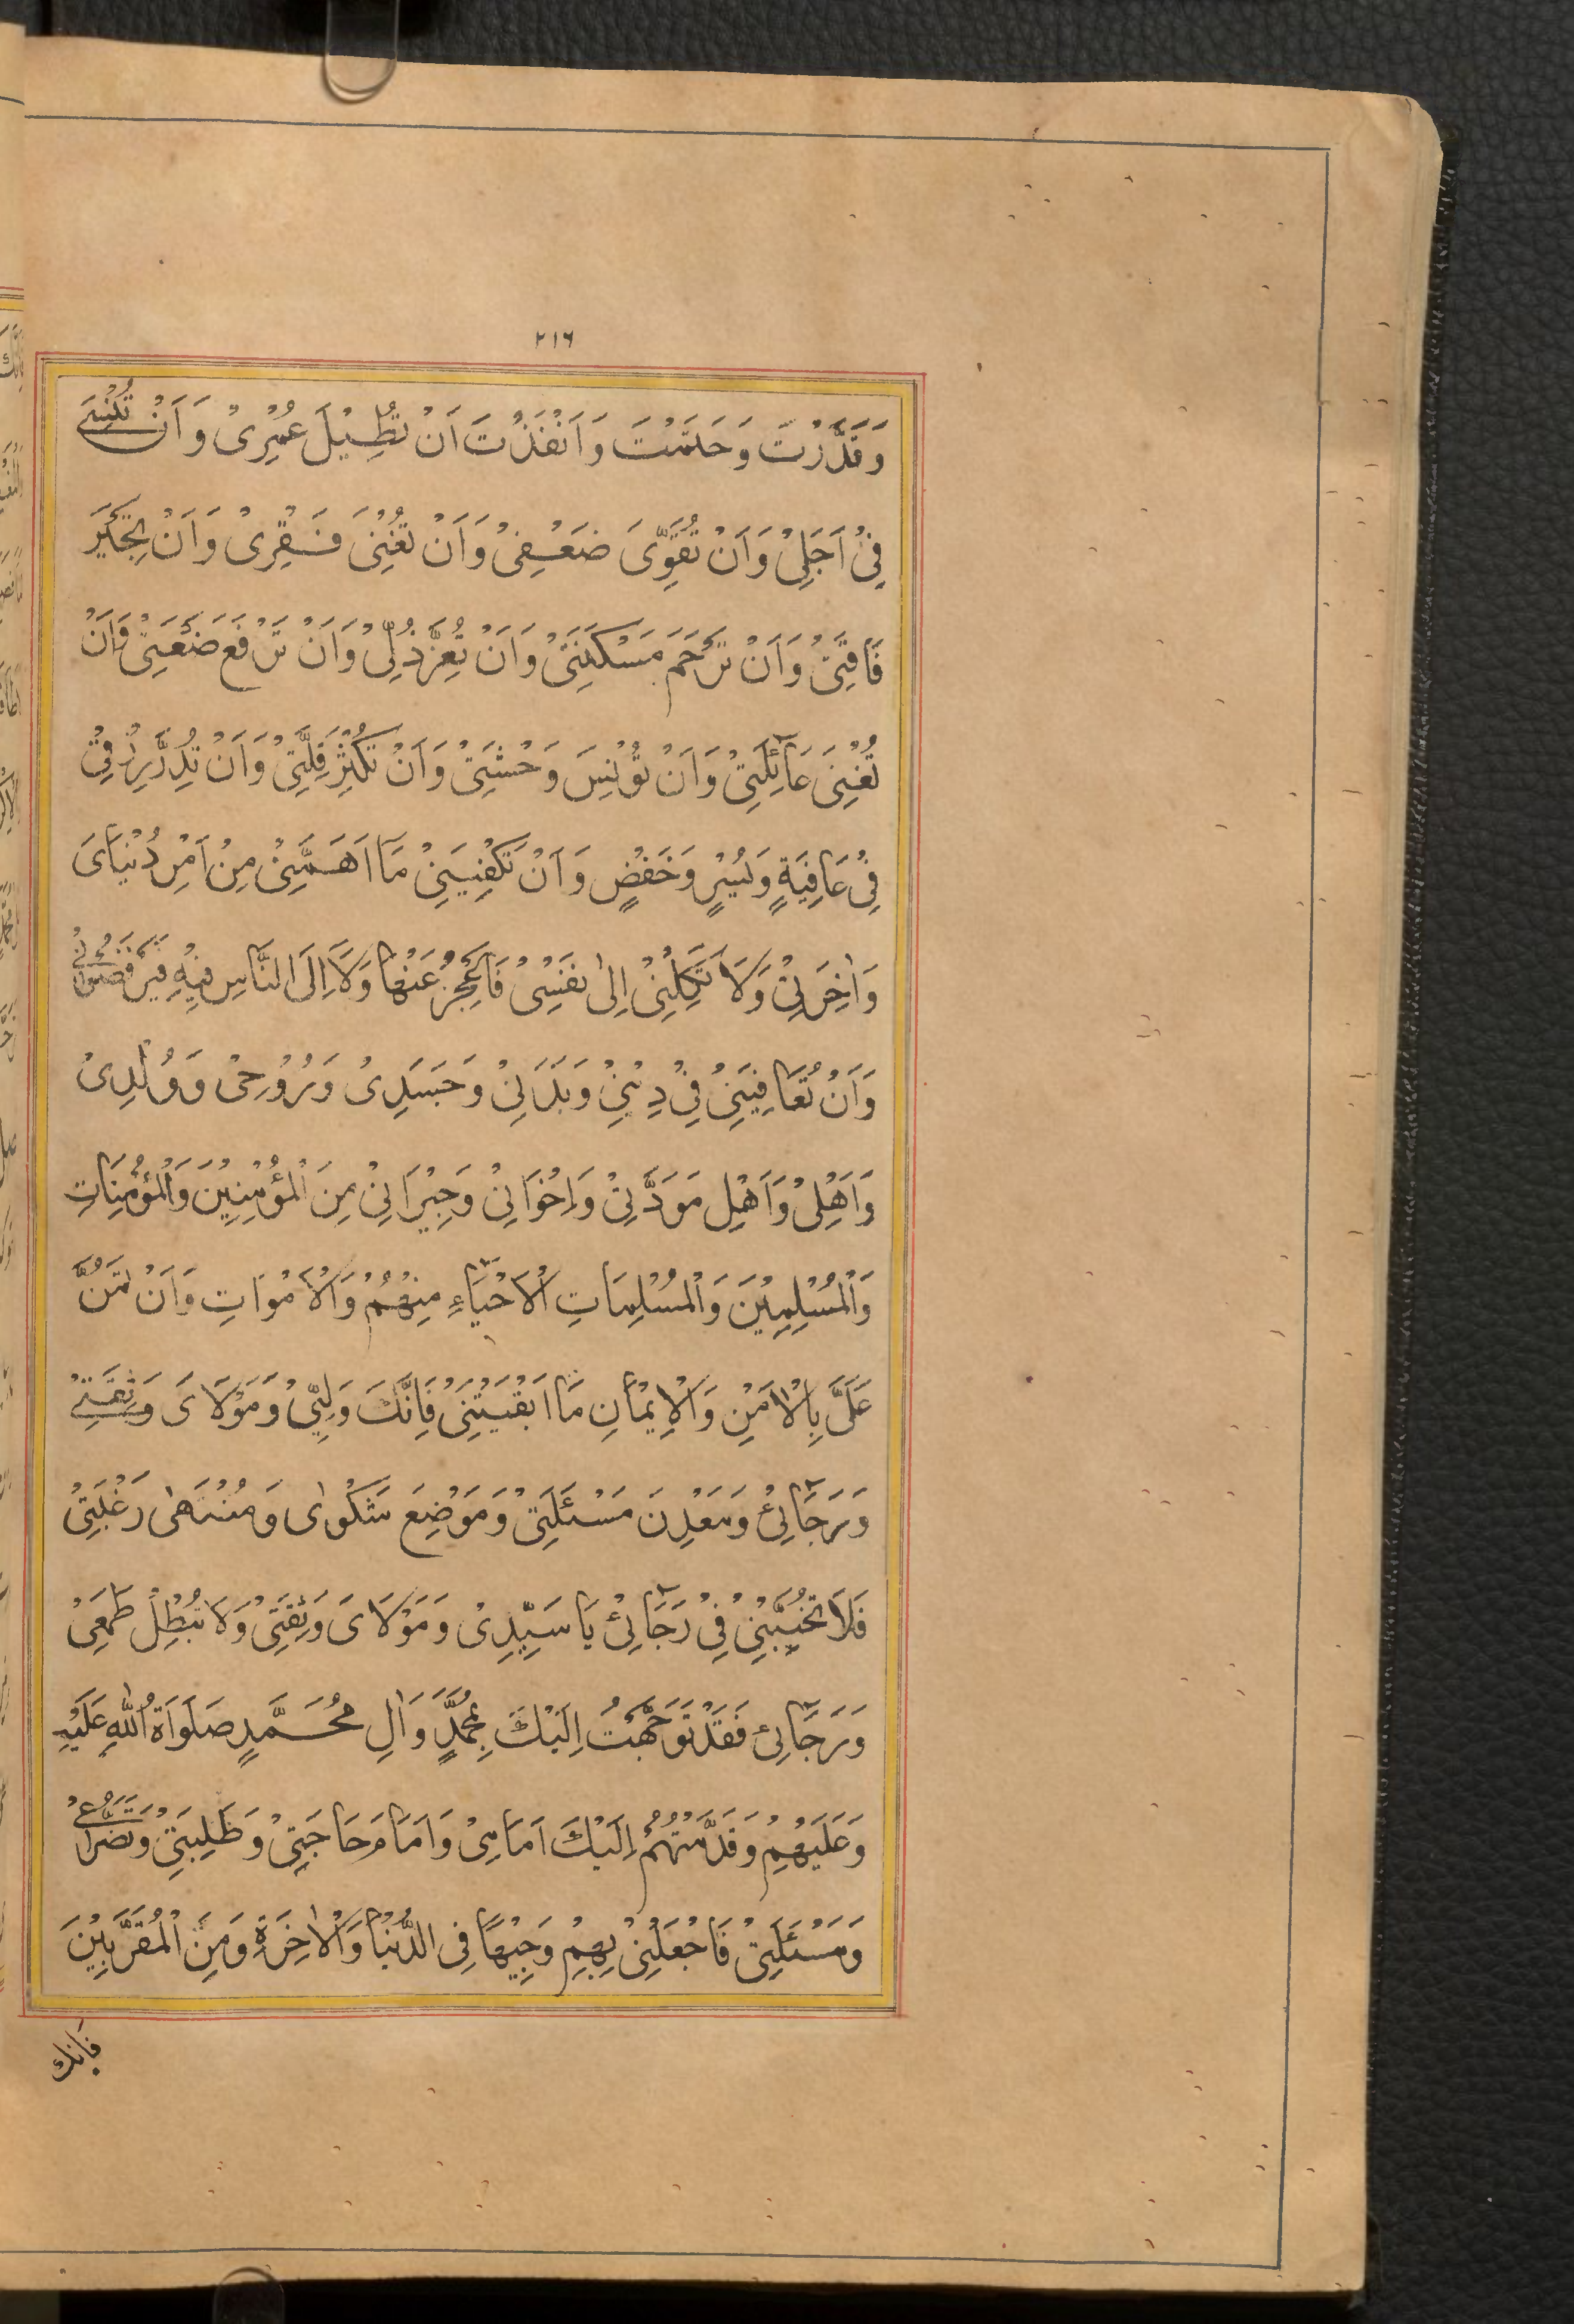 ٢١٦
وَقَدَّرْتَ وَحَلَمْتَ وَاَنْفَذْتَ اَنْ تُطِيْلَ عُمْرِىْ وَاَنْ تُنْسِىَٔ
فِىْ اَجَلِىْ وَاَنْ تُقَوِّىَ ضَعْفِىْ وَاَنْ تُغْنِىَ فَقْرِىْ وَاَنْ تَجْبُرَ
فَاقَتِىْ وَاَنْ تَرْحَمَ مَسْكَنَتِىْ وَاَنْ تُعِزَّ ذُلِّىْ وَاَنْ تَرْفَعَ ضَعَتِىْ وَاَنْ
تُغْنِىَ عَآئِلَتِىْ وَاَنْ تُؤْنِسَ وَحْشَتِىْ وَاَنْ تُكْثِرَ قِلَّتِىْ وَاَنْ تُدِرَّ رِزْقِىْ
فِىْ عَافِيَةٍ وَيُسْرٍ وَخَفْضٍ وَاَنْ تَكْفِيَنِىْ مَا اَهَمَّنِىْ مِنْ اَمْرِ دُنْيَاىَ
وَاٰخِرَتِىْ وَلَا تَكِلْنِىْ اِلٰى نَفْسِىْ فَاَعْجِزُ عَنْهَا وَلَا اِلَى النَّاسِ فَيَرْفَضُوْنِىْ
وَاَنْ تُعَافِيَنِىْ فِىْ دِيْنِىْ وَبَدَنِىْ وَجَسَدِىْ وَرُوْحِىْ وَوُلْدِىْ
وَاَهْلِىْ وَاَهْلِ مَوَدَّتِىْ وَاِخْوَانِىْ وَجِيْرَانِىْ مِنَ الْمُؤْمِنِيْنَ وَالْمُؤْمِنَاتِ
وَالْمُسْلِمِيْنَ وَالْمُسْلِمَاتِ الْاَحْيَآءِ مِنْهُمْ وَالْاَمْوَاتِ وَاَنْ تَمُنَّ
عَلَىَّ بِالْاَمْنِ وَالْاِيْمَانِ مَا اَبْقَيْتَنِىْ فَاِنَّكَ وَلِيِّىْ وَمَوْلَاىَ وَثِقَتِىْ
وَرَجَآئِىْ وَمَعْدِنَ مَسْئَلَتِىْ وَمَوْضِعَ شَكْوٰاى وَمُنْتَهٰى رَغْبَتِىْ
فَلَا تُخَيِّبْنِىْ فِىْ رَجَآئِىْ يَا سَيِّدِىْ وَمَوْلَاىَ وَثِقَتِىْ وَلَا تُبْطِلْ طَمَعِىْ
وَرَجَآئِى فَقَدْ تَوَجَّهْتُ اِلَيْكَ بِمُحَمَّدٍ وَاٰلِ مُحَمَّدٍ صَلَوَاةُ اللّٰهِ عَلَيْهِ
وَعَلَيْهِمْ وَقَدَّمْتُهُمْ اِلَيْكَ اَمَامِىْ وَاَمَامَ حَاجَتِىْ وَطَلِبَتِىْ وَتَضَرُّعِىْ
وَمَسْئَلَتِىْ فَاجْعَلْنِىْ بِهِمْ وَجِيْهًا فِى الدُّنْيَا وَالْاٰخِرَةِ وَمِنَ الْمُقَرَّبِيْنَ
فَاِنك